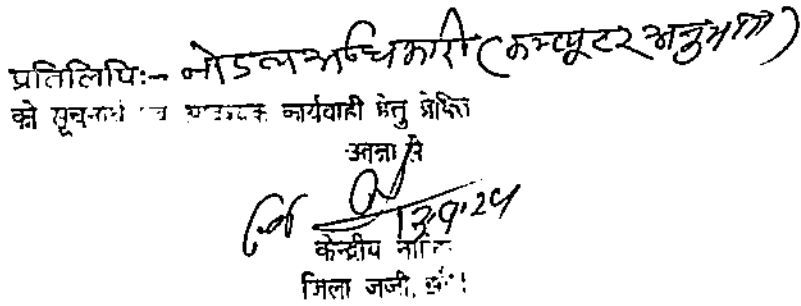 प्रतिलिपिः- नोडल अधिकारी (कम्प्यूटर अनुभाग)
को सूचनार्थ एवं आवश्यक कार्यवाही हेतु प्रेषित
आज्ञा से
13.9.24
केन्द्रीय
जिला जजी,